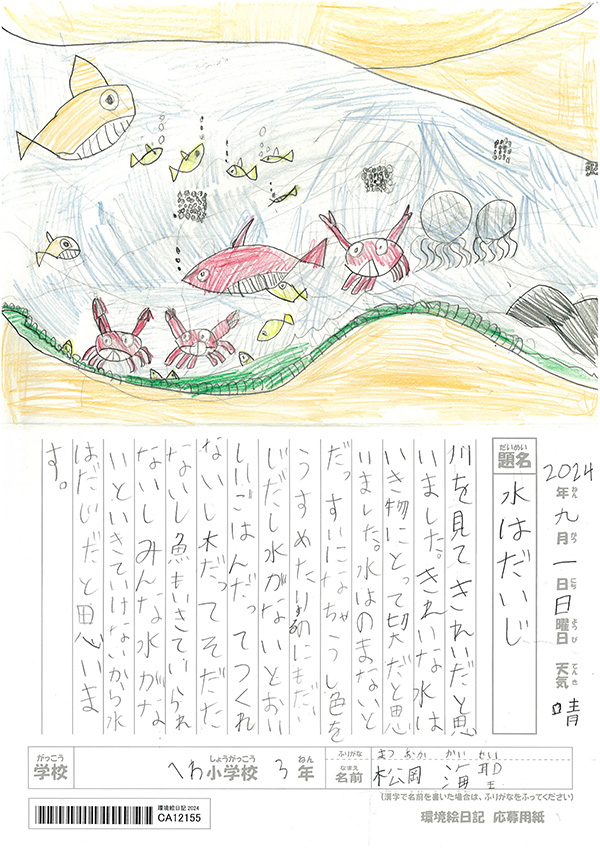 2024年九月一日日曜日 天気 靖
ねん がつ にち ようび てんき
だいめい
題名 水はだいじ
川を見てきれいだと思
いました。きれいな水は
いき物にとって大切だと思
いました。水はのまないと
だっすいになちゃうし色を
うすめたり にもだい
じだし水がないとおい
しいごはんだってつくれ
ないし木だってそだた
ないし魚もいきていられ
ないしみんな水がな
いといきていけないから水
はだいじだと思いま
す。
がっこう しょうがっこう ねん
学校 へわ小学校 3年
ふりがな まつおか かいせい
なまえ
名前 松岡 海聖
(漢字で名前を書いた場合は、ふりがなをふってください)
環境絵日記 応募用紙
環境絵日記 2024
CA12155